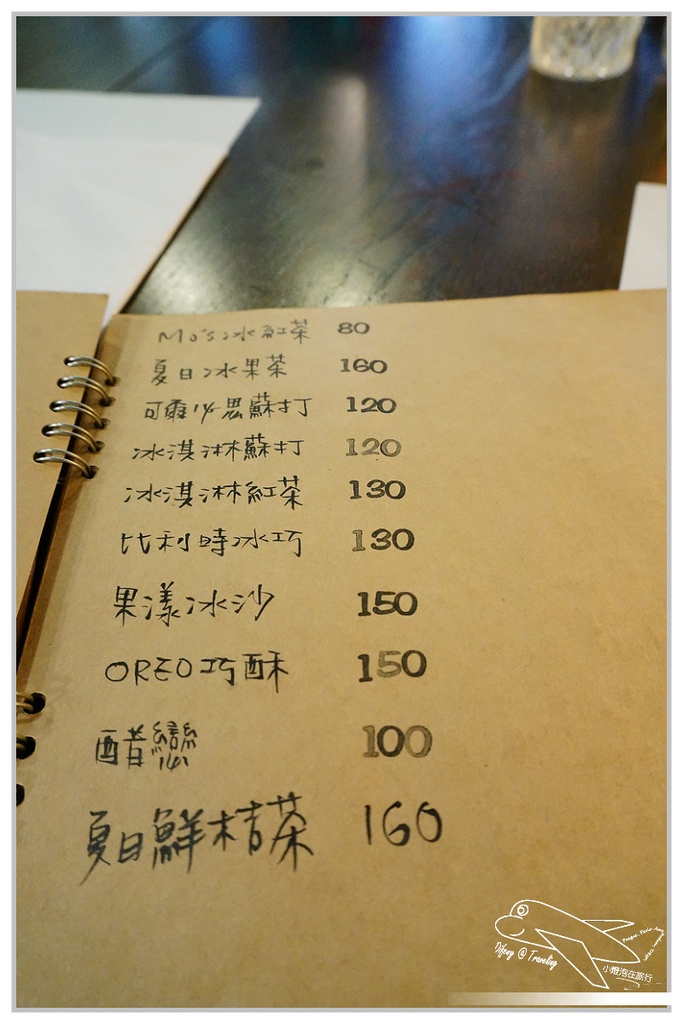 Mo's冰紅茶 80
夏日冰果茶 160
可爾必思蘇打 120
冰淇淋蘇打 120
冰淇淋紅茶 130
比利時冰巧 130
果漾冰沙 150
OREO巧酥 150
醋戀 100
夏日鮮桔茶 160
Difeny @ Traveling
小燈泡在旅行